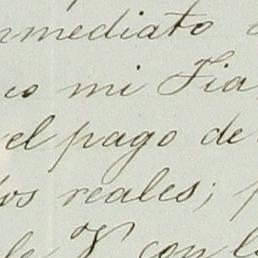 nmediato
co mi Fia
el pago de
los reales; p
de V. con l